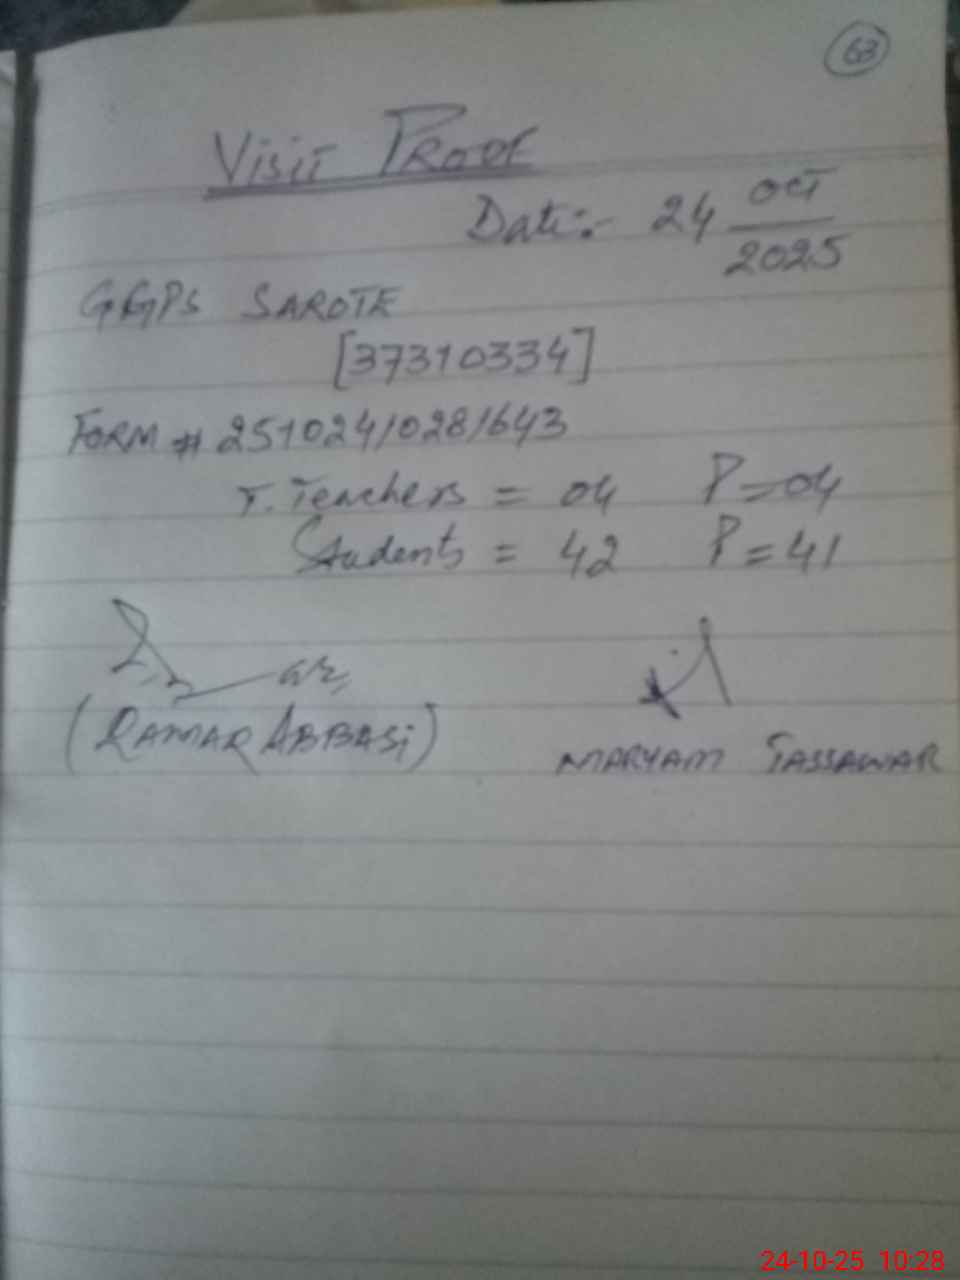 63
Visit Proof
Date:- 24 Oct
2025
GGPS SAROTE
[37310334]
FORM # 251024/028/643
T. Teachers = 04 P = 04
Students = 42 P = 41
(QAMAR ABBASi)
MARYAM TASSAWAR
24-10-25 10:28